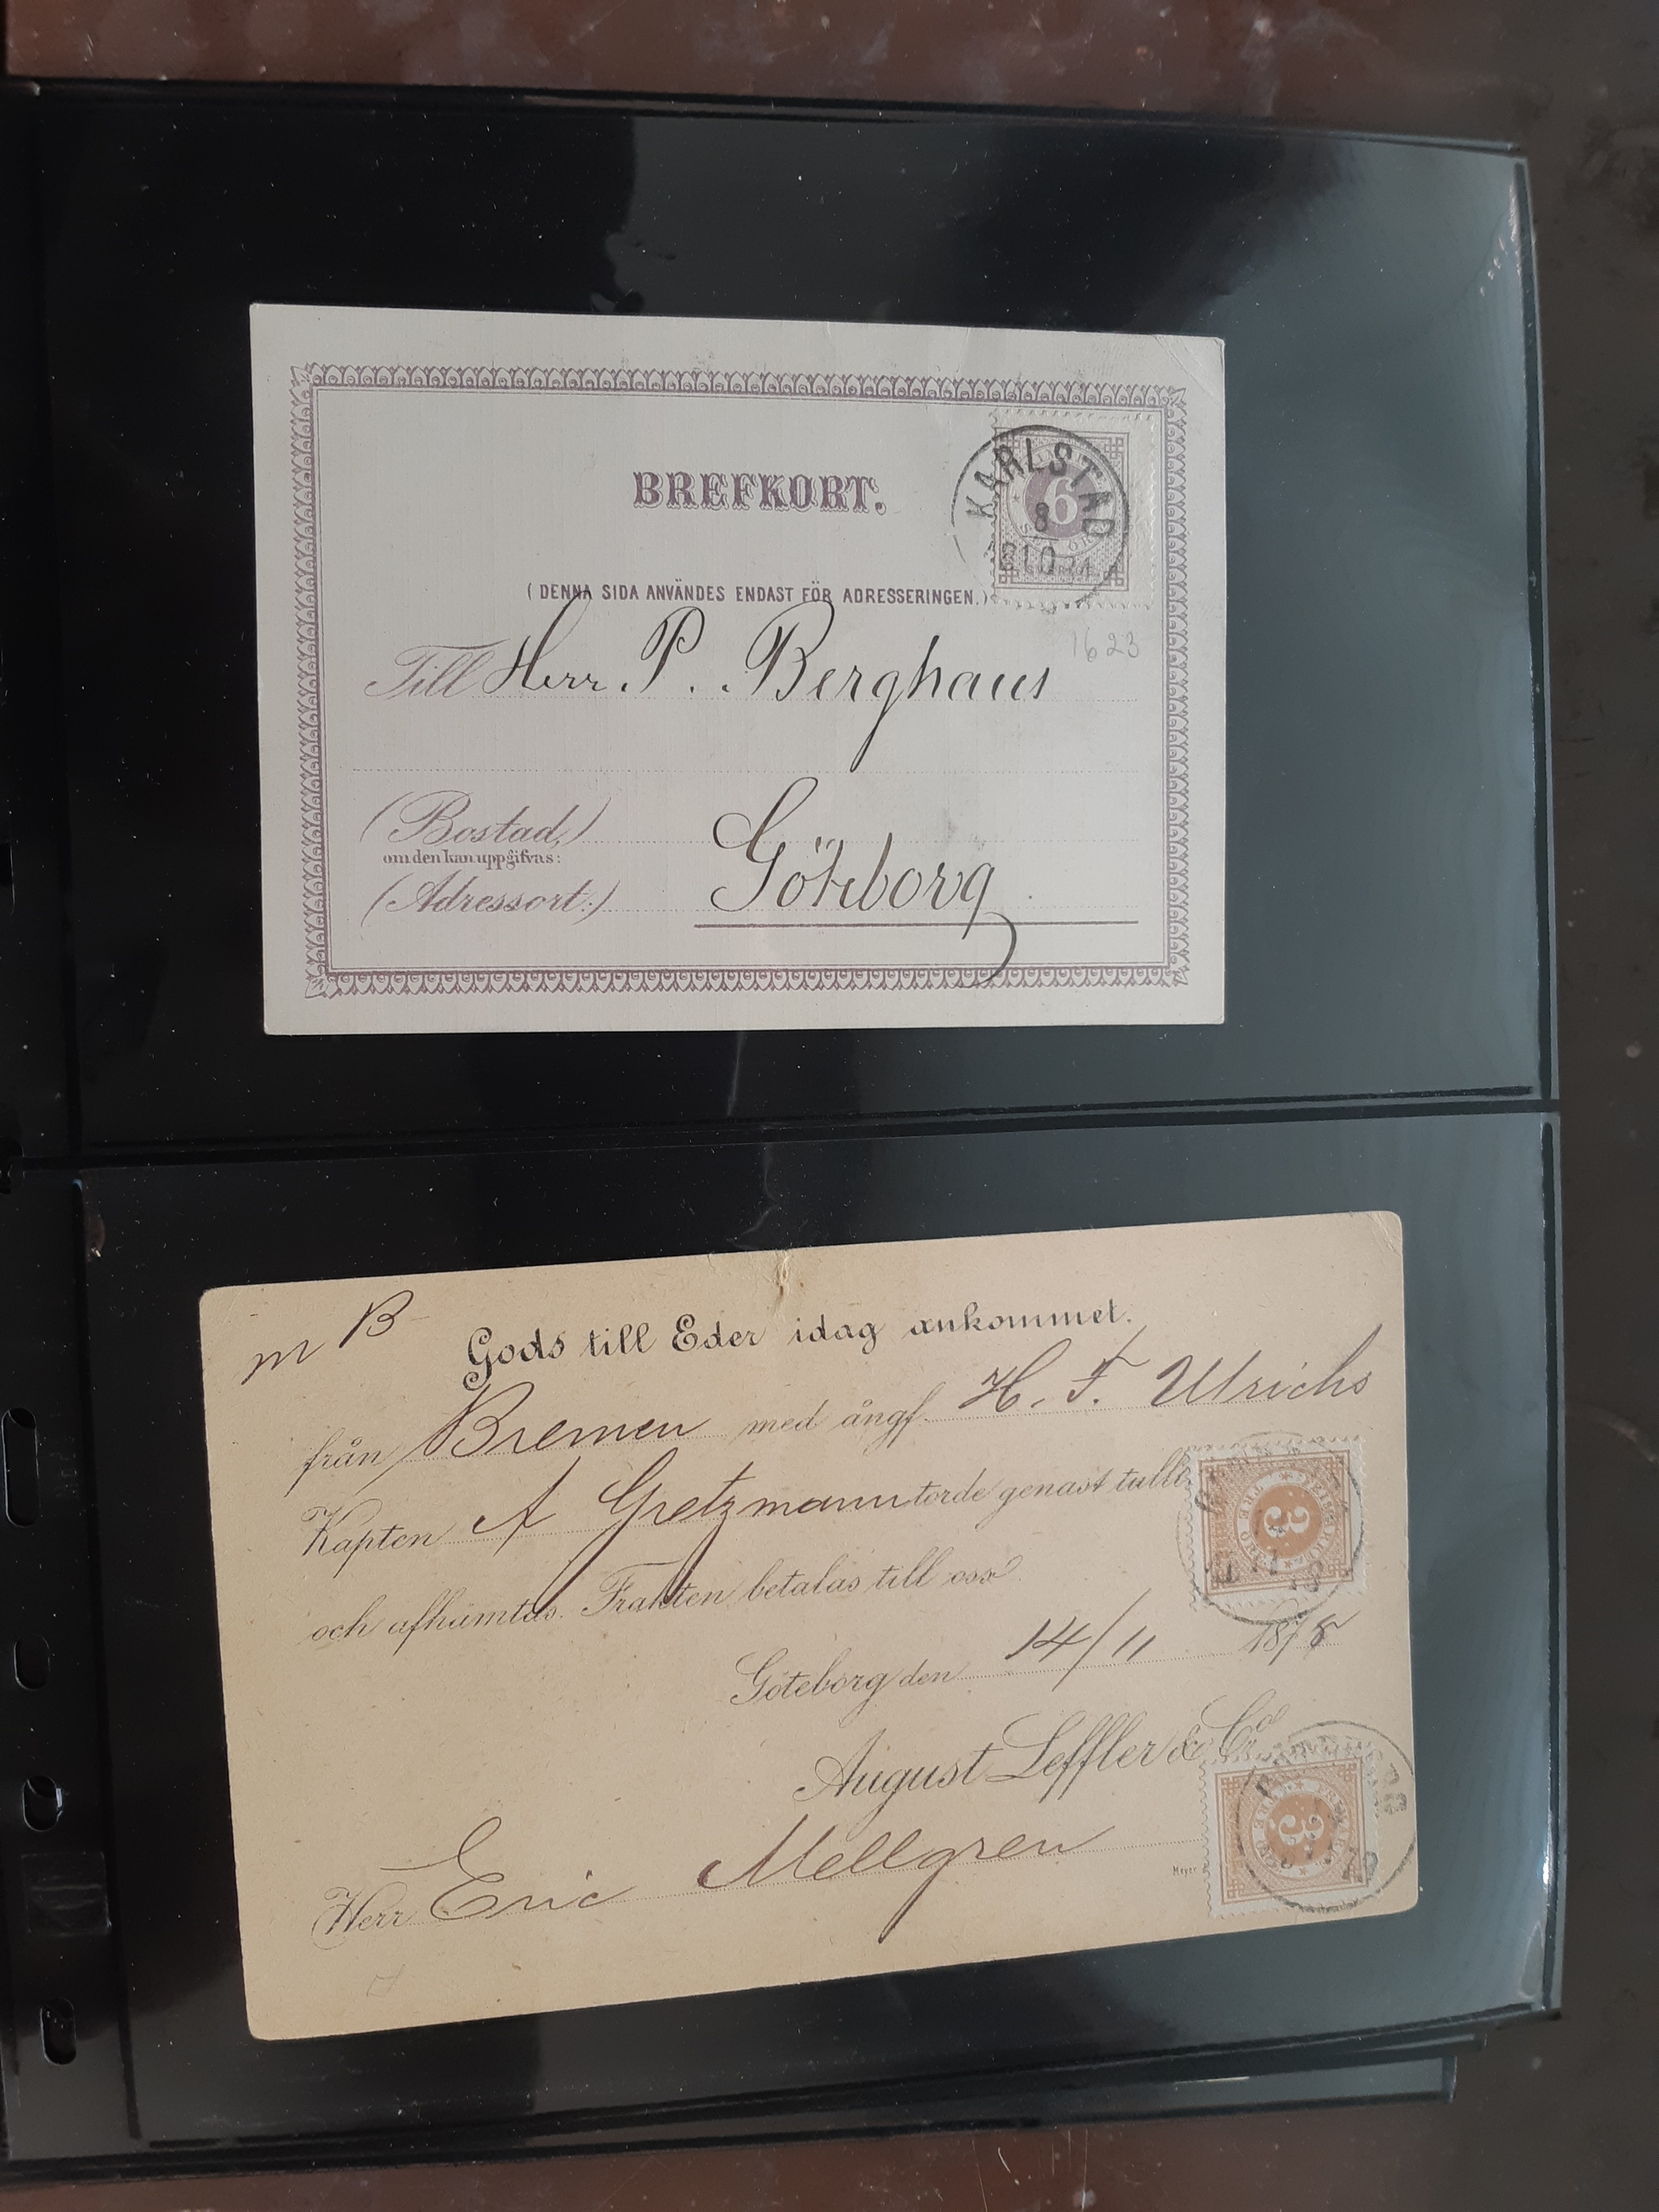 BREFKORT.
KARLSTAD
8
10
6
SEX ÖRE
(DENNA SIDA ANVÄNDES ENDAST FÖR ADRESSERINGEN.)
1623
Till Herr P. Berghaus
(Bostad,)
om den kan uppgifvas:
(Adressort:) Göteborg
m B
Gods till Eder idag ankommet.
från Bremen med ångf. H. F. Ulrichs
Kapten A Gretzmann torde genast tull
och afhämtas. Frakten betalas till oss
3
TRE ÖRE
Göteborg den 14/11 1878
August Leffler & Co
3
Herr Eric Mellgren
Meyer